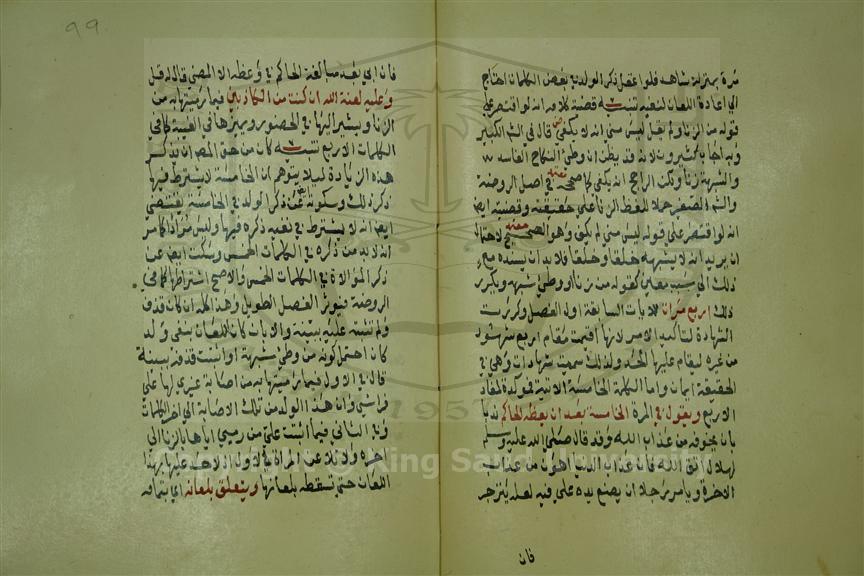 مرة بمنزلة شاهد فلوا غفل ذكر الولد في بعض الكلمات احتاج
الى اعادة اللعان لنفيه تنبيه قضية كلامه انه لو اقتصر على
قوله من الزنا ولم يقل ليس مني انه لا يكفي قال في الشرح الكبير
وبه اجاب كثيرون لانه قد يظن ان وطئ النكاح الفاسد
والشبهة زنا ولكن الراجح انه يكفي كما صححه في اصل الروضة
والشرح الصغير حملا للفظ الزنا على حقيقته وقضيته ايضا
انه لو اقتصر على قوله ليس مني لم يكف وهو الصحيح لاحتمال
ان يريد انه لا يشبهه خلقا وخلقا فلا بد ان يسنده مع
ذلك الى سبب معين كقوله من زنا او وطئ شبهة ويكرر
ذلك اربع مرات للايات السابقة اول الفصل وكررت
الشهادة لتاكيد الامر لانها اقيمت مقام اربع شهود
من غيره ليقام عليها الحد ولذلك سميت شهادات وهي في
الحقيقة ايمان واما الكلمة الخامسة الاتية فمؤكدة لمفاد
الاربع ويقول في المرة الخامسة بعد ان يعظه الحاكم ندبا
بان يخوفه من عذاب الله وقد قال صلى الله عليه وسلم
لهلال اتق الله فان عذاب الدنيا اهون من عذاب
الاخرة ويامر رجلا ان يضع يده على فيه لعله ينزجر
فان
99
فان ابى بعد مبالغة الحاكم في وعظه الا المضي قال له قل
وعلي لعنة الله ان كنت من الكاذبين فيما رميتها به من
الزنا ويشير اليها في الحضور ويميزها في الغيبة كما في
الكلمات الاربع تنبيه كان من حق المصنف ان يذكر
هذه الزيادة ليلا يتوهم ان الخامسة لا يشترط فيها
ذكر ذلك وسكوته عن ذكر الولد في الخامسة يقتضي
ايضا انه لا يشترط في نفيه ذكره فيها وليس مرادا كما مر
انه لا بد من ذكره في الكلمات الخمس وسكت ايضا عن
ذكر الموالاة في الكلمات الخمس والاصح اشتراطها كما في
الروضة فيؤثر الفصل الطويل وهذا كله ان كان قذف
ولم تثبته عليه ببينة والا بان كان اللعان لنفي ولد
كان احتمل كونه من وطئ شبهة او اثبتت قذفه ببينة
قال في الاول فيما رميتها به من اصابة غيري لها على
فراشي وان هذا الولد من تلك الاصابة الى اخر الكلمات
وفي الثاني فيما اثبتت علي من رميي اياها بالزنا الى
اخره ولا تلاعن المراة في الاول اذ لا حد عليها بهذا
اللعان حتى تسقطه بلعانها ويتعلق بلعانه اي بتمامه